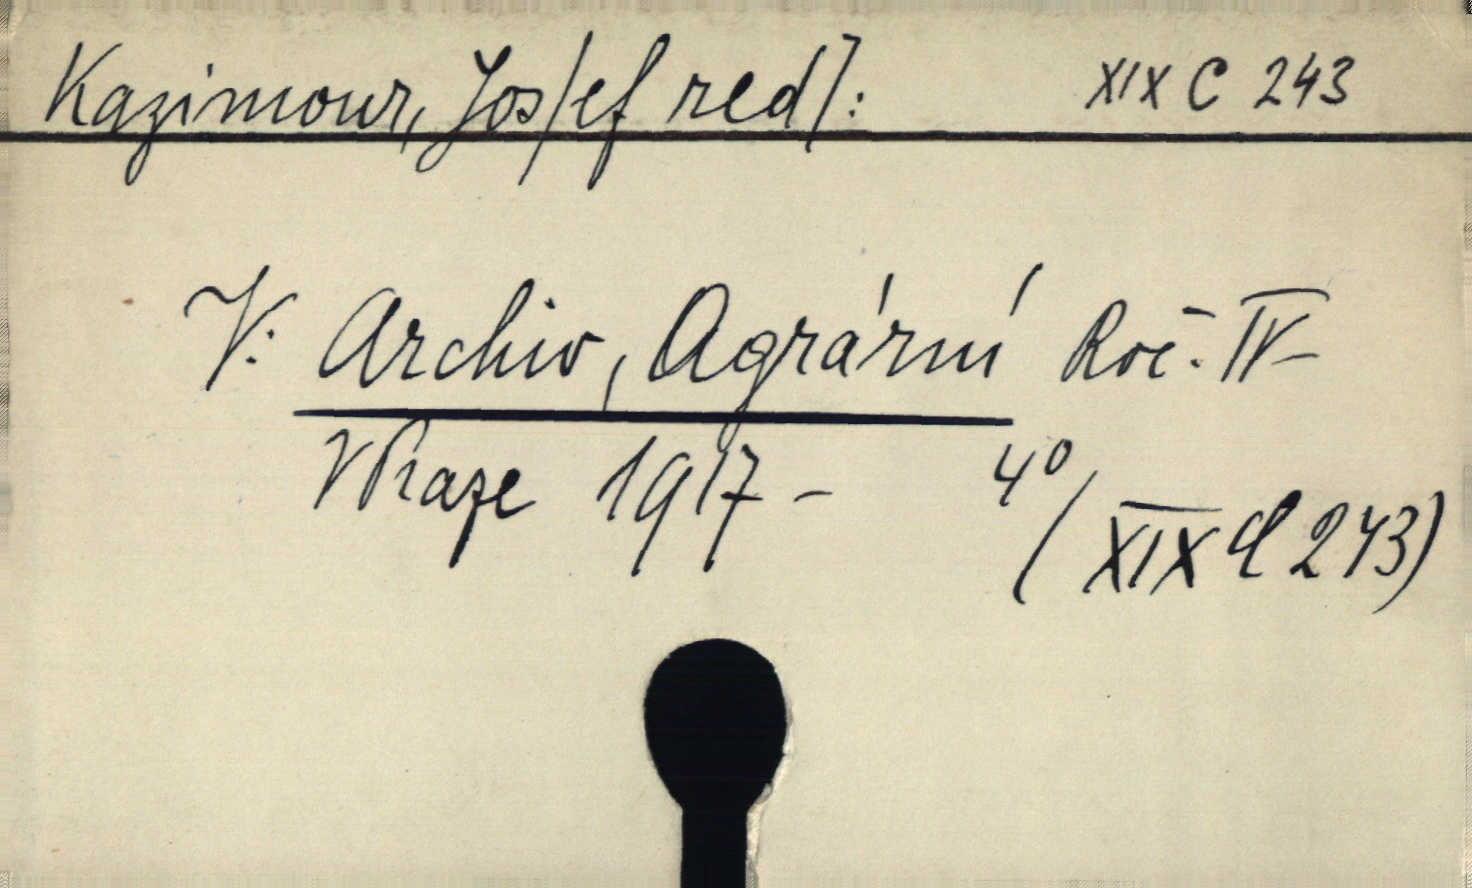 Kazimour, Jos/ef red/: XIX C 243
V: Archiv, Agrární Roč. IV-
V Praze 1917 - 4°
(XIX C 243)